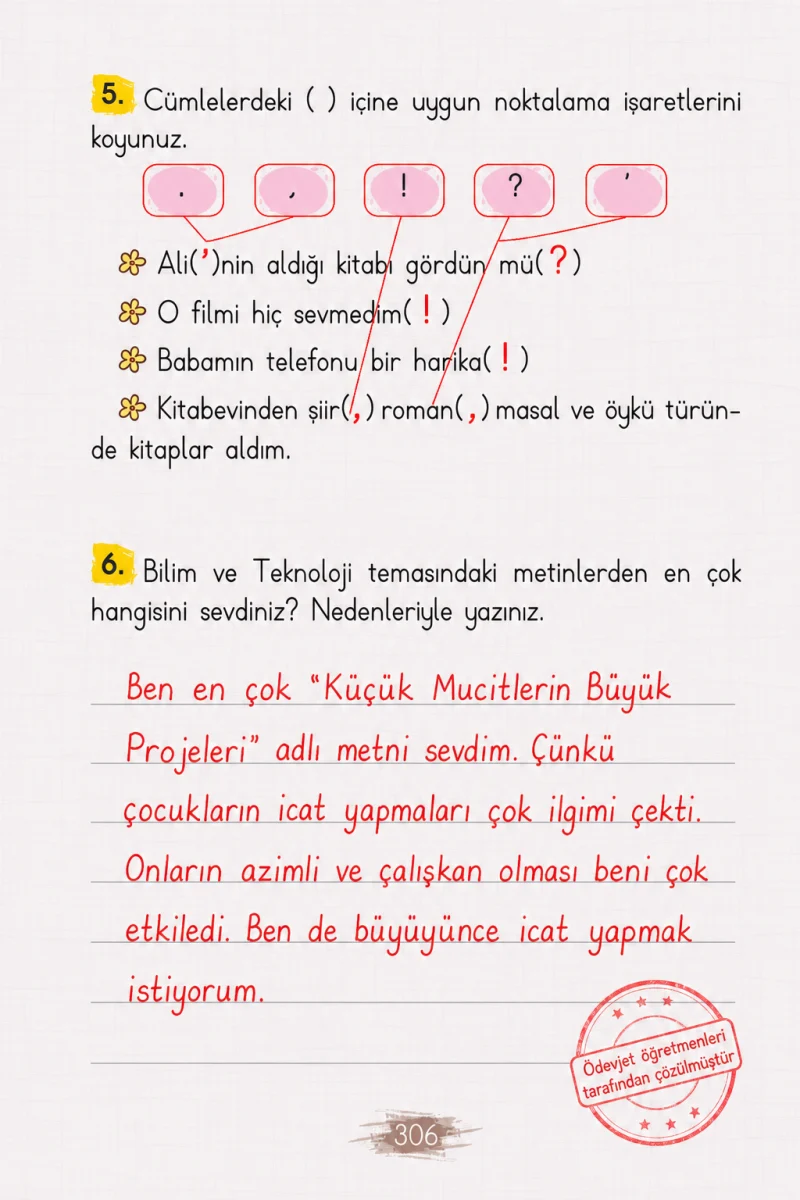 5. Cümlelerdeki ( ) içine uygun noktalama işaretlerini
koyunuz.
. , ! ? '
Ali(')nin aldığı kitabı gördün mü(?)
O filmi hiç sevmedim(!)
Babamın telefonu bir harika(!)
Kitabevinden şiir(,) roman(,) masal ve öykü türün-
de kitaplar aldım.
6. Bilim ve Teknoloji temasındaki metinlerden en çok
hangisini sevdiniz? Nedenleriyle yazınız.
Ben en çok "Küçük Mucitlerin Büyük
Projeleri" adlı metni sevdim. Çünkü
çocukların icat yapmaları çok ilgimi çekti.
Onların azimli ve çalışkan olması beni çok
etkiledi. Ben de büyüyünce icat yapmak
istiyorum.
Ödevjet öğretmenleri
tarafından çözülmüştür
306